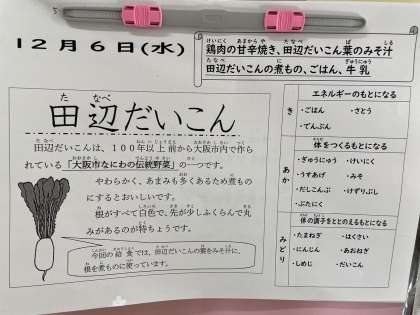 12月6日(水)
鶏肉の甘辛焼き、田辺だいこん葉のみそ汁
田辺だいこんの煮もの、ごはん、牛乳
田辺だいこん
田辺だいこんは、100年以上前から大阪市内で作ら
れている「大阪市なにわの伝統野菜」の一つです。
やわらかく、あまみも多くあるため煮もの
にするとおいしいです。
根がすべて白色で、先が少しふくらんで丸
みがあるのが特ちょうです。
今回の給食では、田辺だいこんの葉をみそ汁に、
根を煮ものに使っています。
き
エネルギーのもとになる
・ごはん ・さとう
・でんぷん
あか
体をつくるもとになる
・ぎゅうにゅう ・けいにく
・うすあげ ・みそ
・だしこんぶ ・けずりぶし
・ぶたにく
みどり
体の調子をととのえるもとになる
・たまねぎ ・はくさい
・にんじん ・あおねぎ
・しめじ ・だいこん